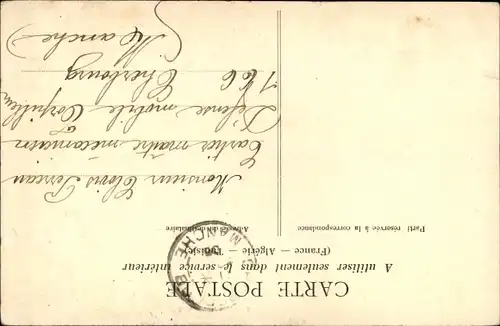 CARTE POSTALE
A utiliser seulement dans le service intérieur
(France — Algérie — Tunisie)
Partie réservée à la correspondance
Adresse du destinataire
MANCHE
Monsieur Clovis
maître mécanicien
Défense mobile
à
Cherbourg
(Manche)